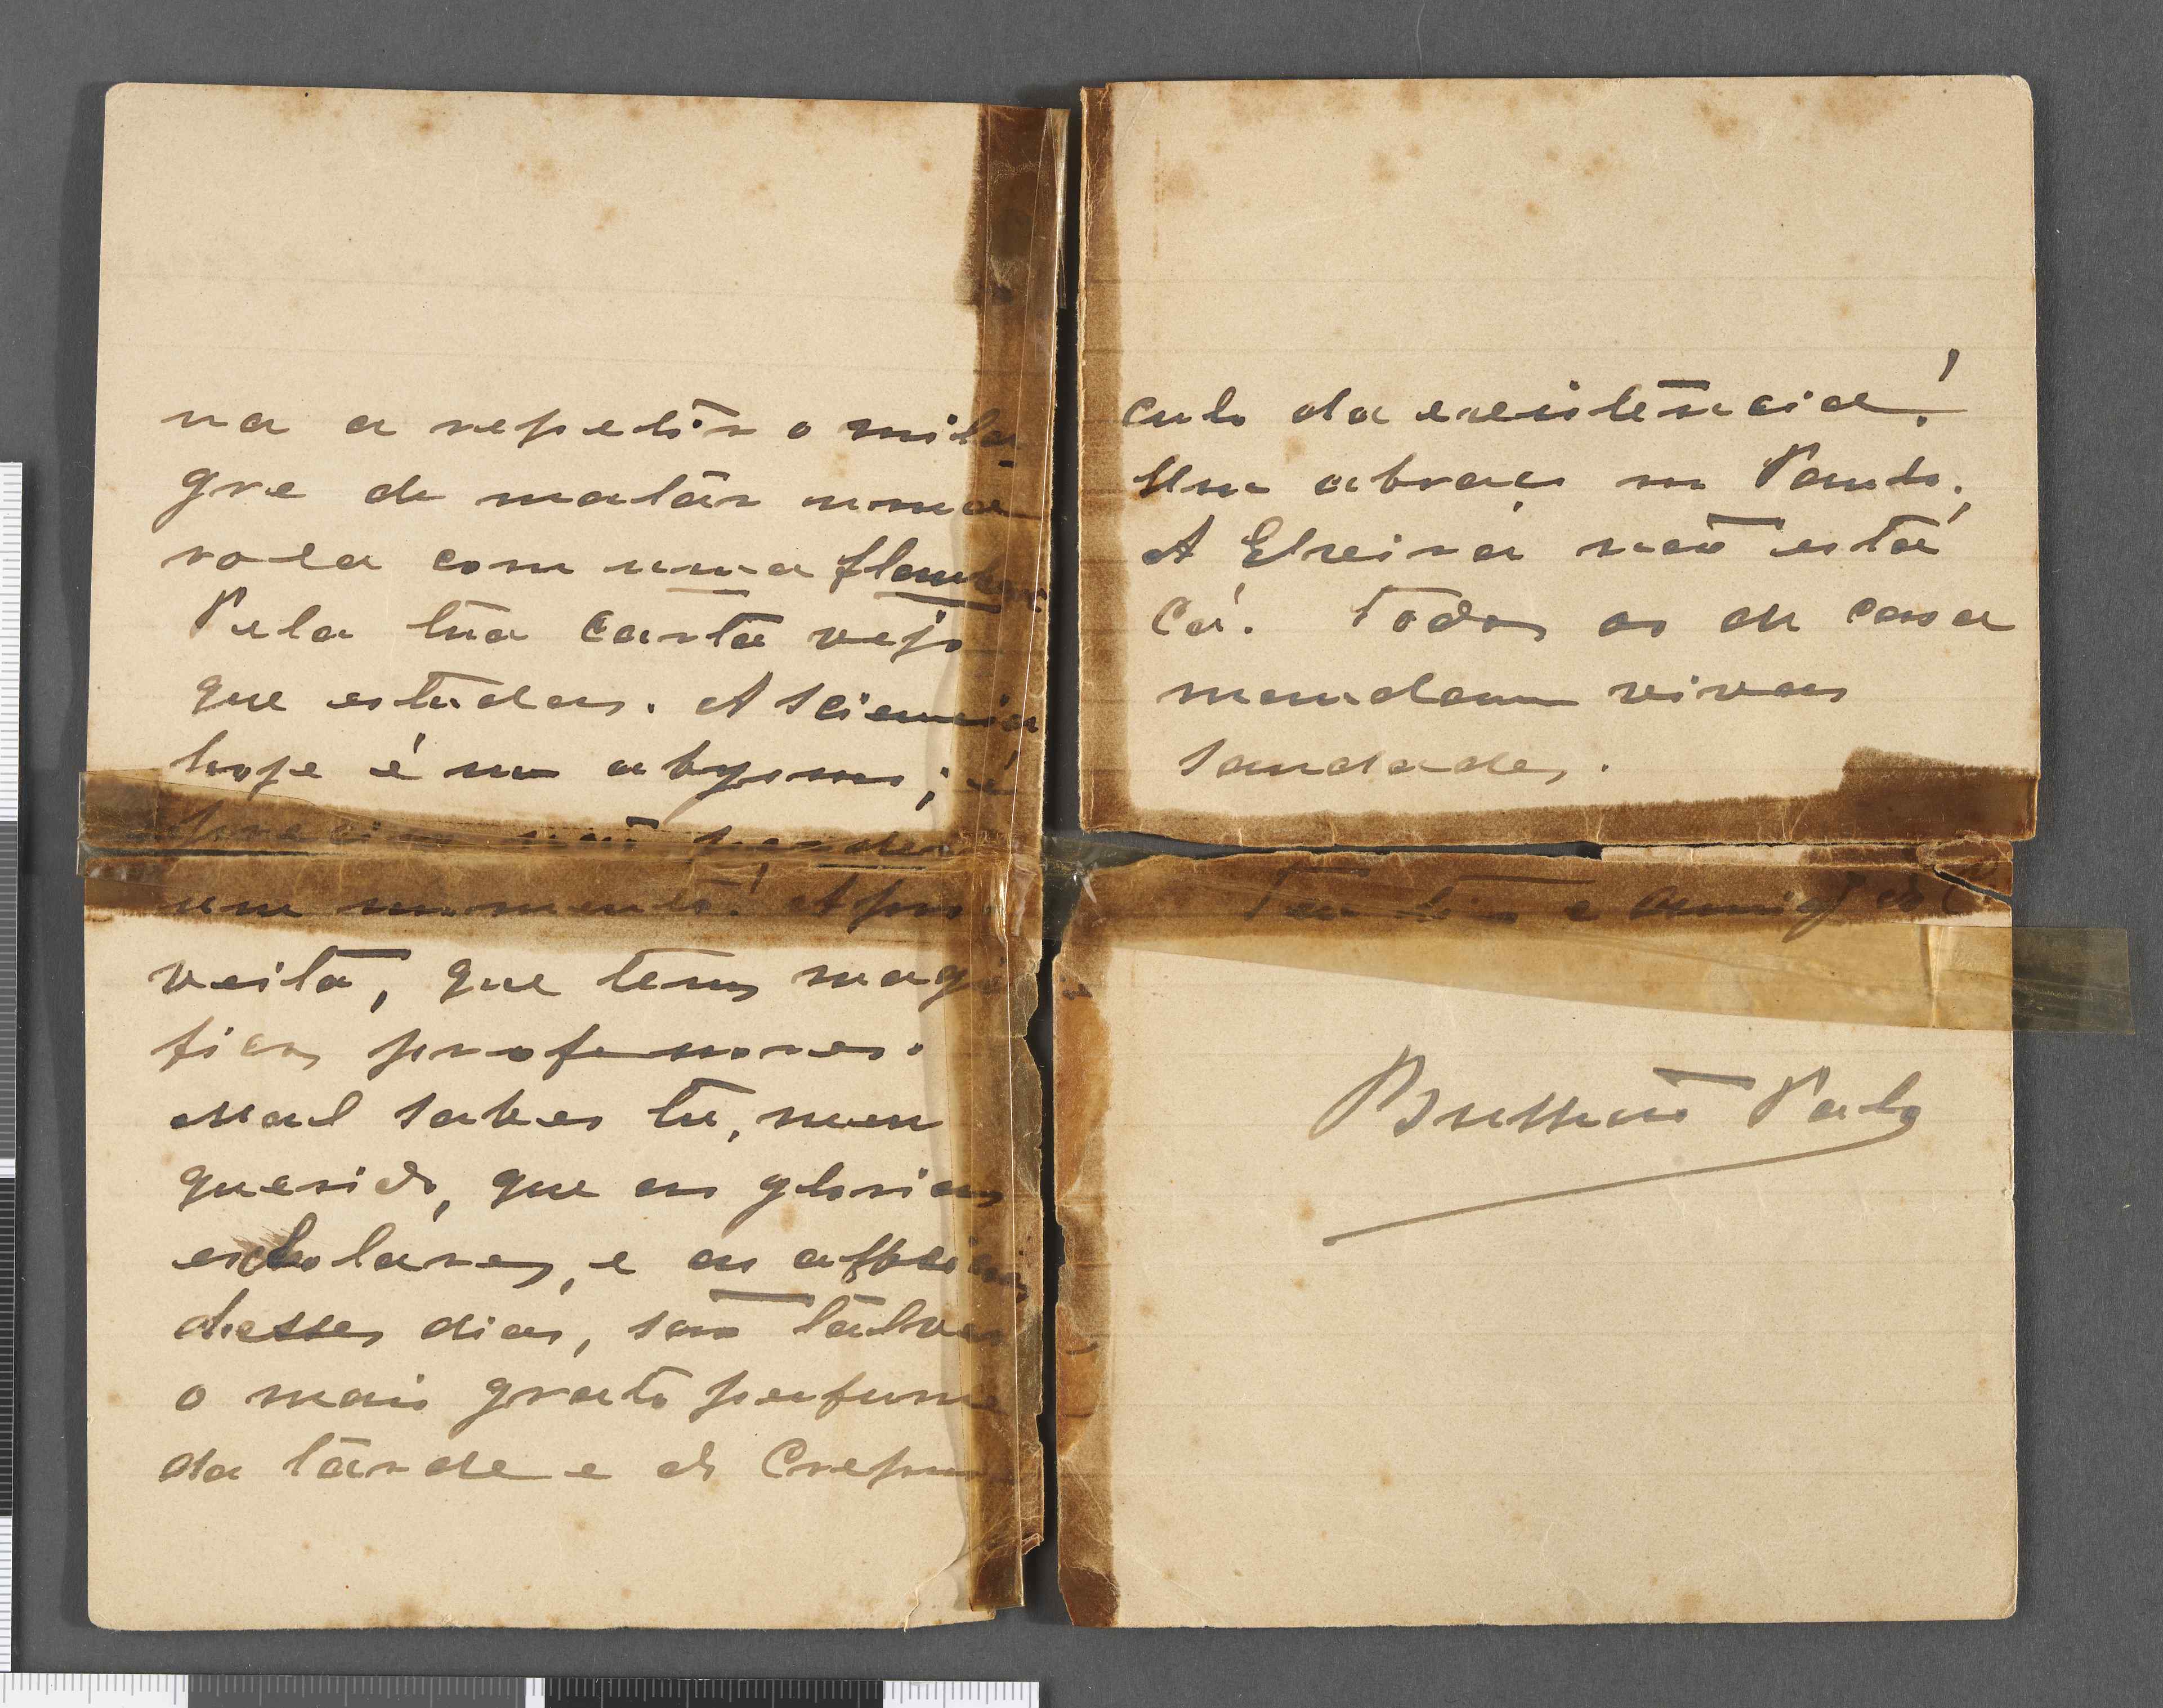 na a repetir o mila-
gre de matár uma
rola com uma flauta
Pela tua carta vejo
que estudas. A sciencia
hoje é um abysmo; é
preciso não perder
um momento! Apro
veita, que tens magni
ficos professores.
Mal sabes tu, meu
querido, que as glorias
escholares, e as
desses dias, são talvez
o mais grato perfume
da tarde e do Crepus
culo da existencia!
Um abraço no Paulo.
A Elvira não está
cá. Todos os de casa
mandam vivas
saudades.
Teu tio e amigo do C.
Bulhão Pato